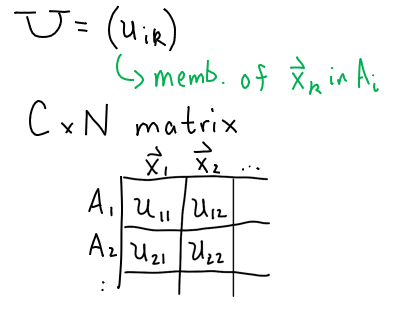 U = (u_ik)
↳ memb. of x⃗_k in A_i
C × N matrix
x⃗_1 x⃗_2 ...
A_1 u_11 u_12
A_2 u_21 u_22
: